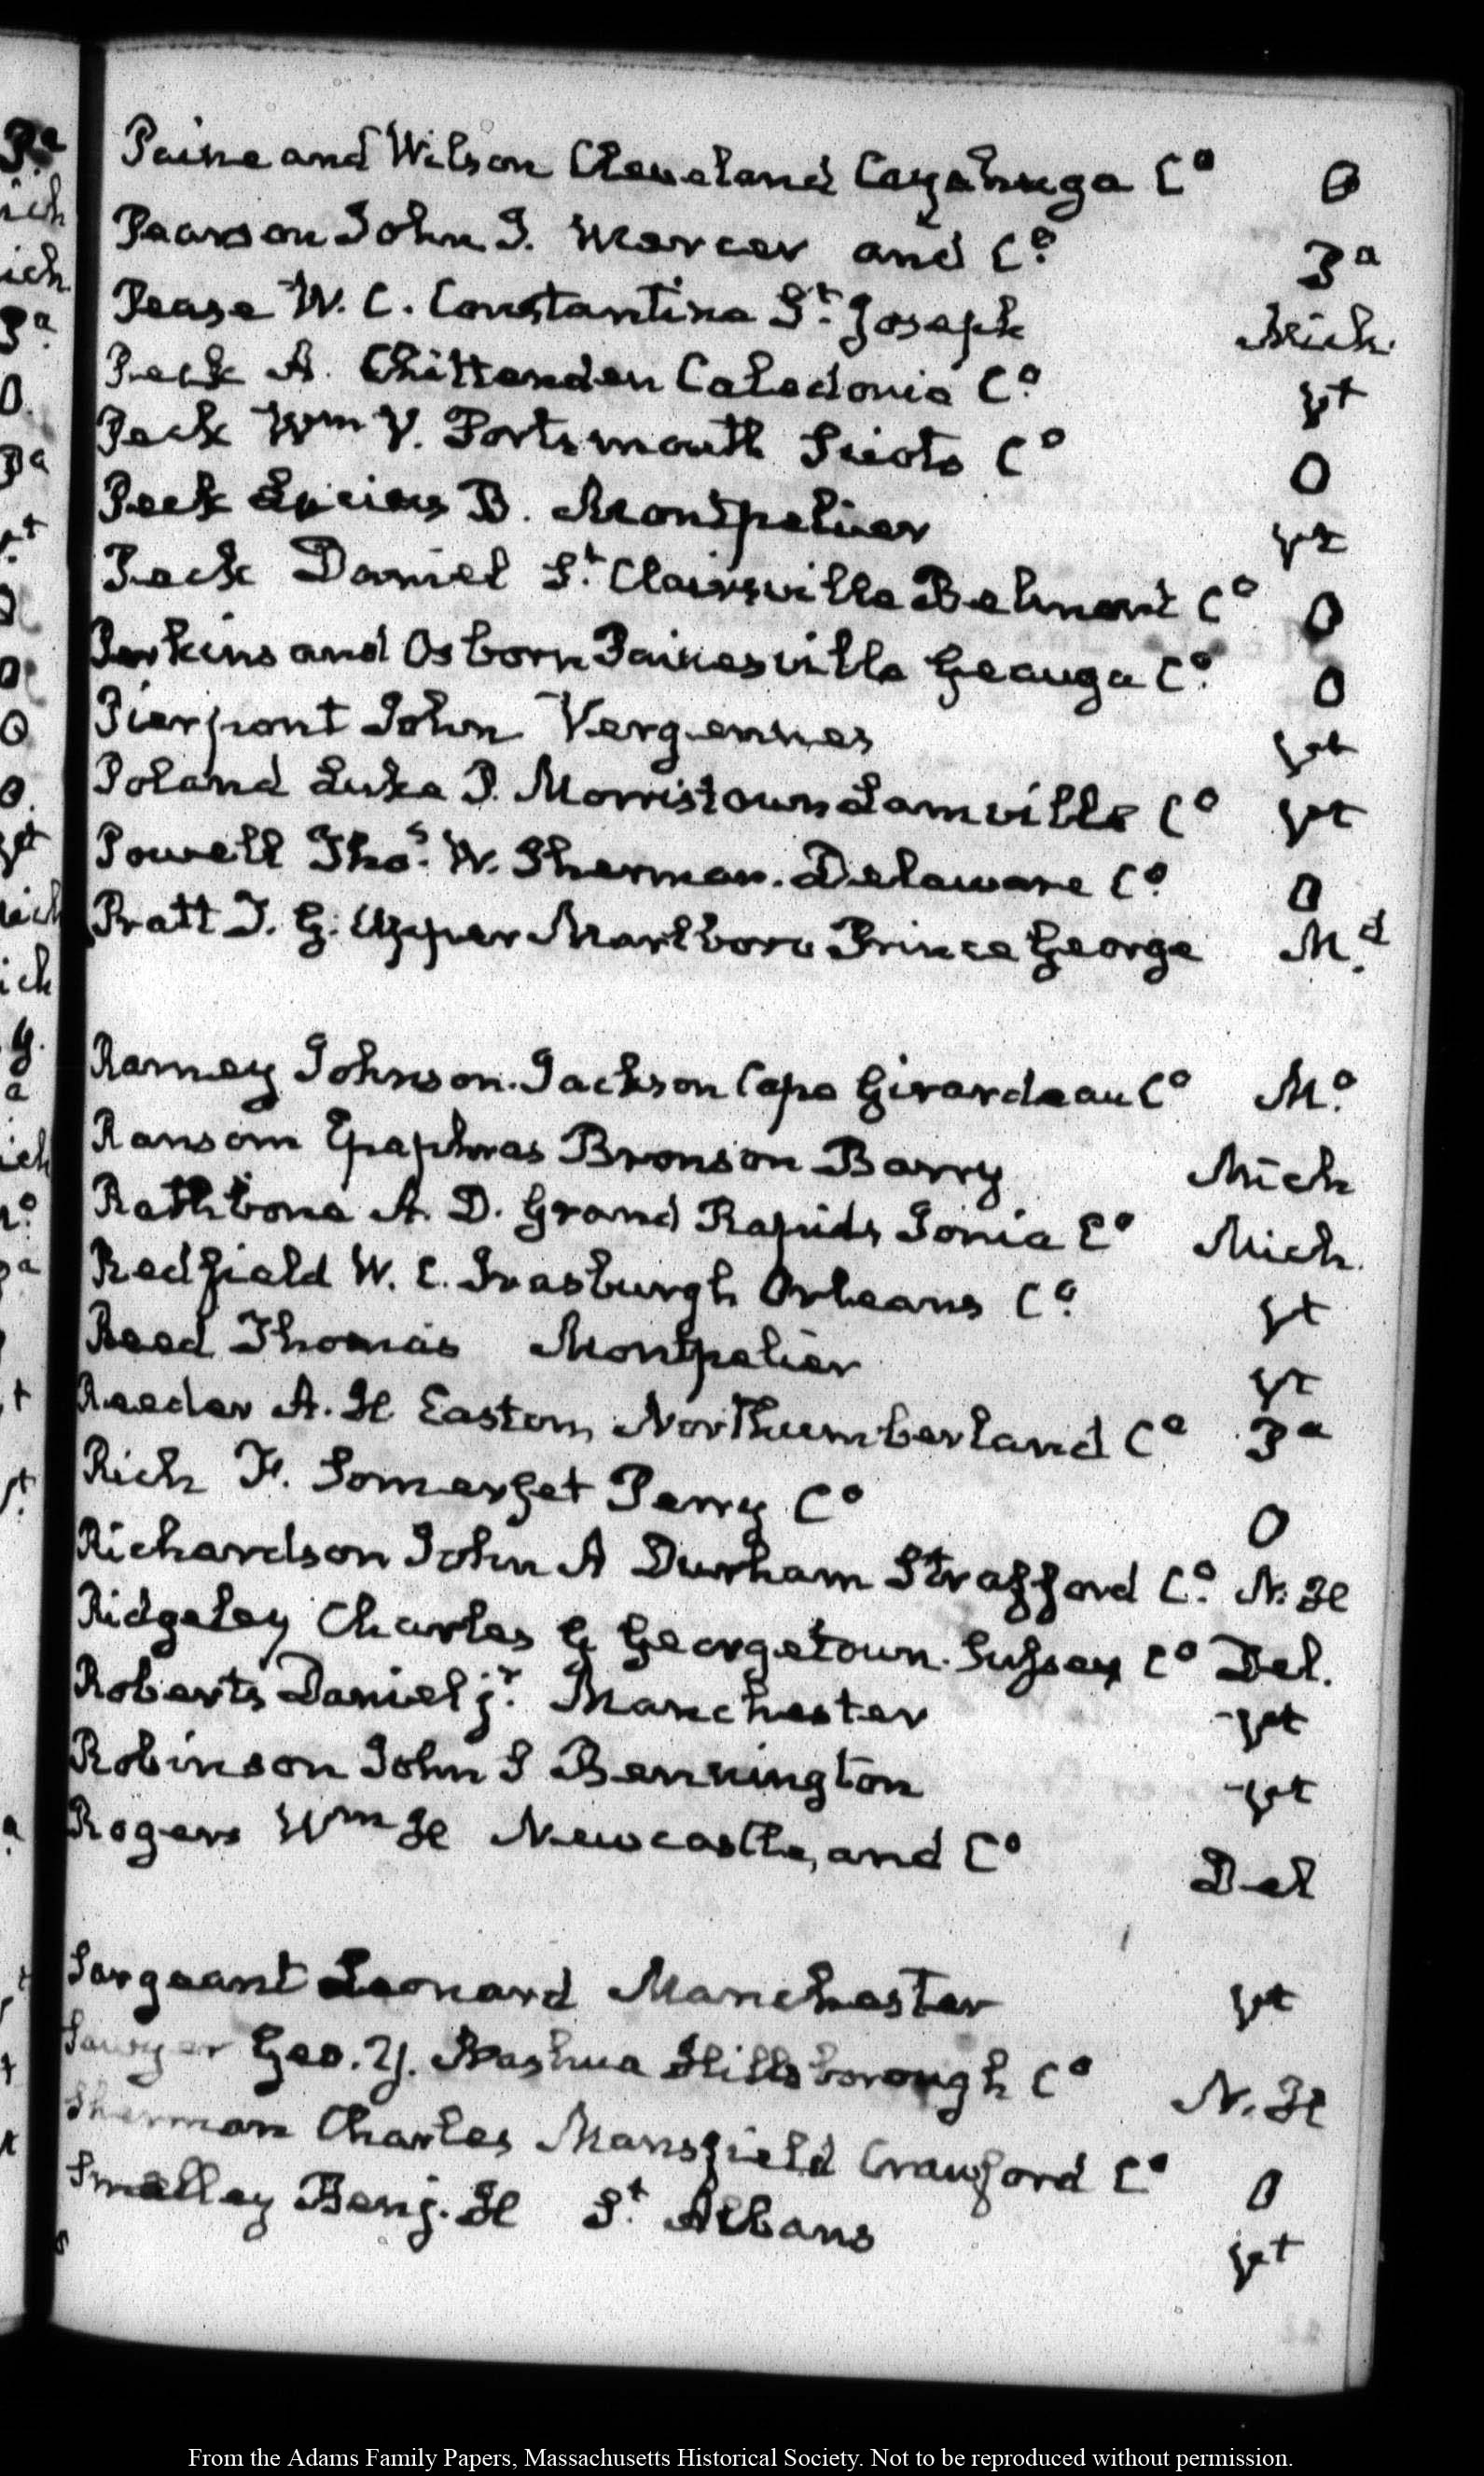 Paine and Wilson Cleveland Cayahuga Cº O
Pearson John J. Mercer and Cº Pª
Pease W. C. Constantine St. Joseph Mich.
Peck A. Chittenden Caledonia Cº Vt
Peck Wm V. Portsmouth Scioto Cº O
Peck Lucius B. Montpelier Vt
Peck Daniel St. Clairsville Belmont Cº O
Perkins and Osborn Painesville Geauga Cº O
Pierpont John Vergennes Vt
Poland Luke P. Morristown Lamville Cº Vt
Powell Thos. W. Sherman. Delaware Cº O
Pratt T. G. Upper Marlboro Prince George Md.
Ramey Johnson. Jackson Cape Girardeau Cº Mº
Ransom Epaphras Bronson Barry Mich
Rathbone A. D. Grand Rapids Ionia Cº Mich.
Redfield W. C. Irasburgh Orleans Cº Vt
Reed Thomas Montpelier Vt
Reeder A. H Easton, Northumberland Cº Pª
Rich F. Somerset Perry Cº O
Richardson John A Durham Strafford Cº N. H
Ridgeley Charles G Georgetown. Sussex Cº Del.
Roberts Daniel jr. Manchester Vt
Robinson John S Bennington Vt
Rogers Wm H Newcastle, and Cº Del
Sargeant Leonard Manchester Vt
Sawyer Geo. Y. Nashua Hillsborough Cº N. H
Sherman Charles Mansfield Crawford Cº O
Smalley Benj. H St. Albans Vt
From the Adams Family Papers, Massachusetts Historical Society. Not to be reproduced without permission.